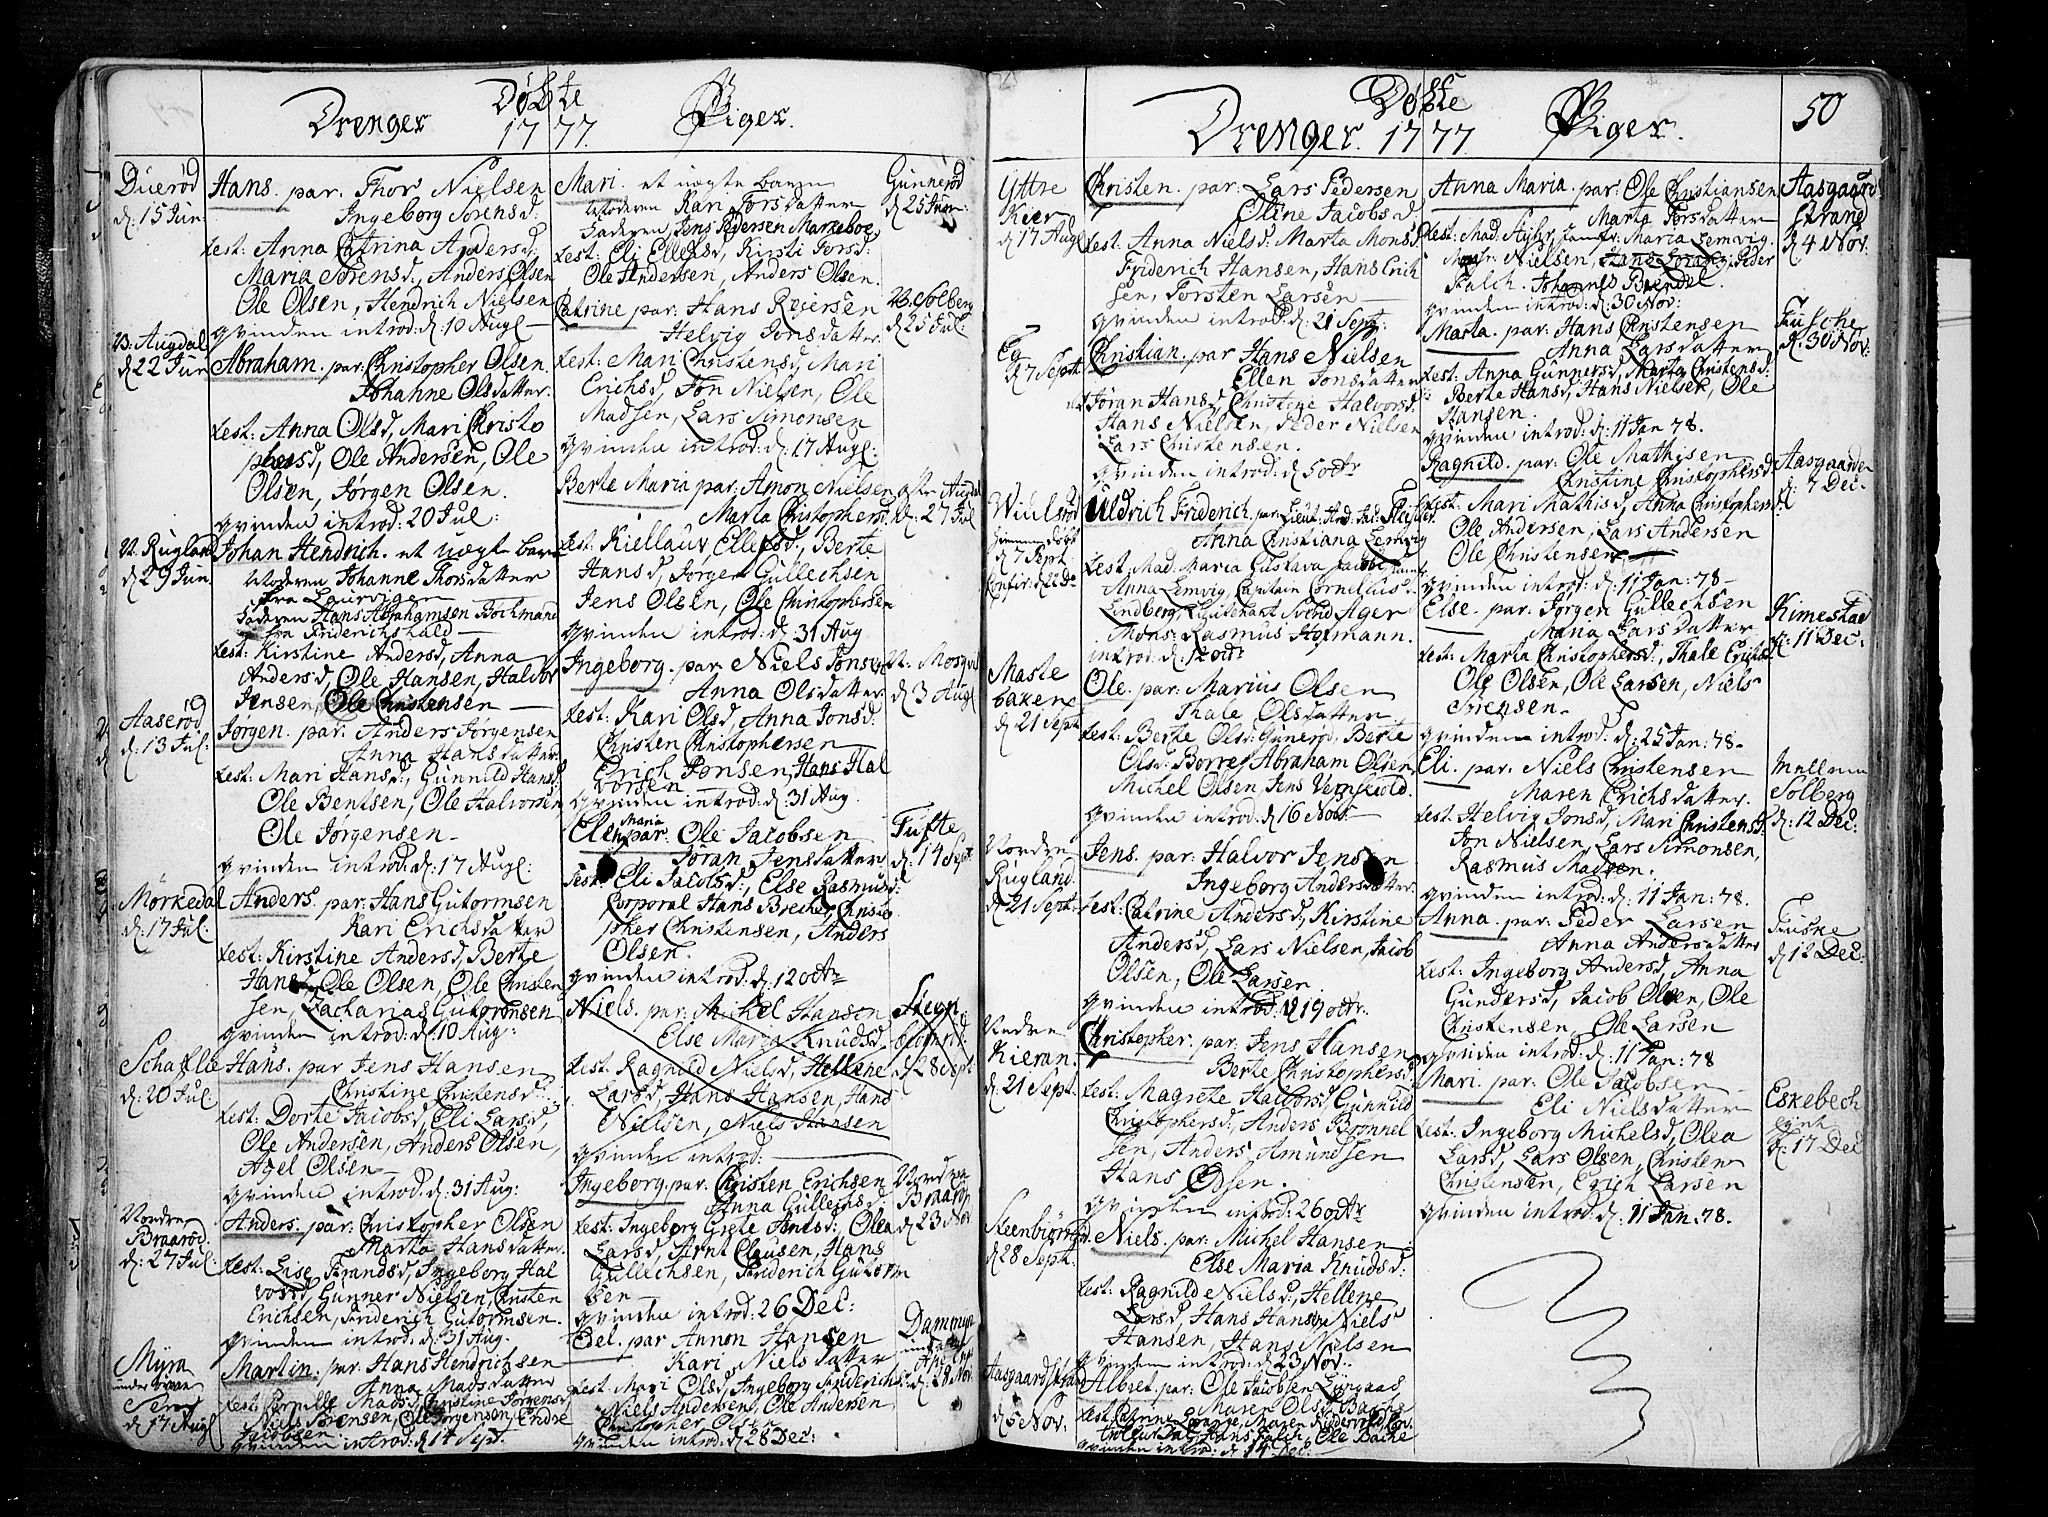 Døbte
Drenger 1777. Piger.
Duerød
d: 15 Jun:
Hans. par: Thor Nielsen
Ingeborg Sørensd:
test: Anna Catrina Andersd:
Maria Sørensd, Anders Olsen
Ole Olsen, Hendrich Nielsen
qvinden introd: d: 10 Augl
N. Augdal
d 22 Jun
Abraham. par: Christopher Olsen
Johanne Olsdatter.
test: Anna Olsd, Mari Christo
phersd, Ole Andersen, Ole
Olsen, Jørgen Olsen.
qvinden introd: 20 Jul:
N. Rugland
d 29 Jun.
Johan Hendrich. et uægt barn
Moderen Johanne Thorsdatter
fra Laurvigen
Faderen Hans Abrahamsen Bochmann
fra Friderichshald
test: Kirstine Andersd, Anna
Andersd, Ole Hansen, Halvor
Jensen, Ole Christensen
Aaserød
d: 13 Jul:
Jørgen. par: Anders Jørgensen
Anna Hansdatter
test: Mari Hansd:, Gunnild Hansd
Ole Bentsen, Ole Halvorsen
Ole Jørgensen
qvinden introd: d: 17 Augl:
Mørkedal
d: 17 Jul:
Anders. par: Hans Gutormsen
Kari Erichsdatter
test: Kirstine Andersd, Berte
Hansd, Ole Olsen, Ole Christen
sen, Zacharias Gutormsen
qvinden introd: d: 10 Aug:
Schafle
d: 20 Jul
Hans. par Jens Hansen
Christine Christensd:
test: Dorte Jacobsd, Eli Larsd,
Ole Andersen, Anders Olsen,
Axel Olsen
qvinden introd: d: 31 Aug:
Nordre
Braarød.
d: 27 Jul:
Anders. par: Christopher Olsen
Marta Hansdatter.
test: Lise Frandsd, Ingeborg Hal
vorsd, Gunner Nielsen, Christen
Erichsen, Friderich Gutormsen.
qvinden introd: d: 31 Aug.
Myra
under
d 17 Augl
Martin. par: Hans Hendrichsen
Anna Madsdatter
test: Pernille Madsd, Christine Jørgensd
Niels Sørensen, Ole Jørgensen, Endre
Jacobsen.
qvinden introd: d 14 Sept.
Mari. et uægte barn
Moderen Kari Torsdatter
Faderen Jens Pedersen Markeboe
test: Eli Ellefsd, Kirsti Torsd:
Ole Andersen, Anders Olsen.
Gunnerød
d 25 Jun:
Catrine par: Hans Reiersen
Helvig Jonsdatter.
test: Mari Christensd, Mari
Erichsd, Jon Nielsen, Ole
Madsen, Lars Simonsen
qvinden introd: d: 17 Augl:
N. Solberg
d 25 Jul:
Berte Maria par: Amon Nielsen
Marta Christophersd
test: Kiellauv Ellefsd:, Berte
Hansd, Jørgen Gullechsen
Jens Olsen, Ole Christophersen
qvinden introd: d: 31 Aug
østre Augdal
d: 27 Jul
Ingeborg. par Niels Jonsen
Anna Olsdatter
test: Kari Olsd, Anna Jonsd:
Christen Christophersen
Erich Jonsen, Hans Hal
vorsen
qvinden introd: d: 31 Aug.
d 3 Augl
Elen Maria par: Ole Jacobsen
Jøran Jensdatter
test: Eli Jacobsd:, Else Rasmusd:
Corporal Hans Brecke, Christo
pher Christensen, Anders
Olsen.
qvinden introd: d. 12 octr
Tufte
d: 14 Sept:
Niels. par: Michel Hansen
Else Maria Knudsd,
test: Ragnild Nielsd, Hellene
Larsd, Hans Hansen, Hans
Nielsen, Niels Hansen
qvinden introd:
d 28 Sept
Ingeborg. par: Christen Erichsen
Anna Gullechsd:
test: Ingeborg Grete Jensd:, Olea
Larsd, Arnt Clausen, Hans
Gullechsen, Friderich Gutorm
sen
qvinden introd: 26 Dec:
Nordre
Braarø
d 23 Nov
Edel. par Annon Hansen
Kari Nielsdatter
test: Mari Olsd, Ingeborg Friderichsd:
Niels Andersen, Ole Andersen
Christopher Olsen
qvinden introd: d 28 Dec:
Dammyr
Døbte
Drenger. 1777. Piger.
50
Yttre
Kier
d 17 Augl
Christen. par: Lars Pedersen
Oline Jacobsd
test: Anna Nielsd: Marta Monsd
Friderich Hansen, Hans Erich
sen, Torsten Larsen
qvinden introd: d: 21 Sept:
Eg
d 7 Sept:
Christian. par Hans Nielsen
Ellen Jonsdatter
test Jøran Hansd, Christine Halvorsd.
Hans Nielsen, Peder Nielsen
Lars Christensen.
qvinden introd: d 5 octr
d 7 Sept
Confir: d 22 Do
Uldrich Friderich. par: Lieut: And: Jac: Fleischer
Anna Christiana Lemvig
test Mad: Maria Gustava Jacobi, Jomfr
Anna Lemvig, Capitain Cornelius
Lindberg, Lieutenant Svend Ager
Mons: Rasmus Hofmann.
introd: d: 12 octr
Maste
baken
d 21 Sept.
Ole. par: Marius Olsen
Thale Olsdatter.
test: Berte Olsd: Gunerød, Berte
Olsd: Borre, Abraham Olsen
Michel Olsen, Jens Vernskiold.
qvinden introd: d 16 Nov:
Nordre
Rugland.
d 21 Sept.
Jens. par: Halvor Jensen
Ingeborg Andersdatter.
test: Catrine Andersd, Kirstine
Andersd, Lars Nielsen, Jacob
Olsen, Ole Larsen
qvinden introd: d 19 octr.
Nedre
Kieran.
d: 21 Sept.
Christopher. par: Jens Hansen
Berte Christophersd:
test: Magrete Halvorsd, Gunnild
Christophersd, Anders Brønnel
sen, Anders Amundsen
Hans Olsen.
qvinden introd: 26 octr
Steenbiørnrød.
d 28 Sept.
Niels. par: Michel Hansen
Else Maria Knudsd:
test: Ragnild Nielsd:, Hellene
Larsd, Hans Hansen, Niels
Hansen, Hans Nielsen
qvinden introd: d 23 Nov:
Aasgaardstrand
d 5 Nov.
Albret. par: Ole Jacobsen Lyngaas
Maren Olsd Bache
qvinden introd: d 14 Dec:
Anna Maria. par: Ole Christiansen
Marta Torsdatter
test: Mad: Jomfr: Maria Lemvig.
Nielsen, Peder
Falch. Johannes Brendel.
qvinden introd: d: 30 Nov:
Aasgaard
strand
d 4 Nov:
Marta. par: Hans Christensen
Anna Larsdatter
test: Anna Gunnersd, Marta Christensd:
Berte Hansd, Hans Nielsen, Ole
Hansen.
qvinden introd: d: 11 Jan 78.
Fusche
d. 30 Nov:
Ragnild. par: Ole Mathisen
Christine Christophersd
test: Mari Mathisd, Anna Christophersd:
Ole Andersen, Lars Andersen
Ole Christensen
qvinden introd: d: 11 Jan: 78
Aasgaarden
d: 7 Dec:
Else. par: Jørgen Gullechsen
Maria Larsdatter
test: Maria Christophersd:, Thale Erichsd
Ole Olsen, Ole Larsen, Niels
Sørensen.
qvinden introd: d: 25 Jan: 78.
Kimestad
d: 11 Dec:
Eli. par: Niels Christensen
Maren Erichsdatter.
test: Helvig Jonsd, Mari Christensd:
Jon Nielsen, Lars Simonsen,
Rasmus Madsen.
qvinden introd: d: 11 Jan: 78.
Mellem
Solberg
d: 12 Dec:
Anna: par: Peder Larsen
Anna Andersdatter
test: Ingeborg Andersd, Anna
Gundersd, Jacob Olsen, Ole
Christensen, Ole Larsen
qvinden introd: d: 11 Jan: 78
Fuske
d 12 Dec:
Mari. par: Ole Jacobsen
Eli Nielsdatter
test: Ingeborg Michelsd, Olea
Larsd, Lars Olsen, Christen
Christensen, Erich Larsen
qvinden introd: d: 11 Jan: 78.
Eskebech
d: 17 Dec